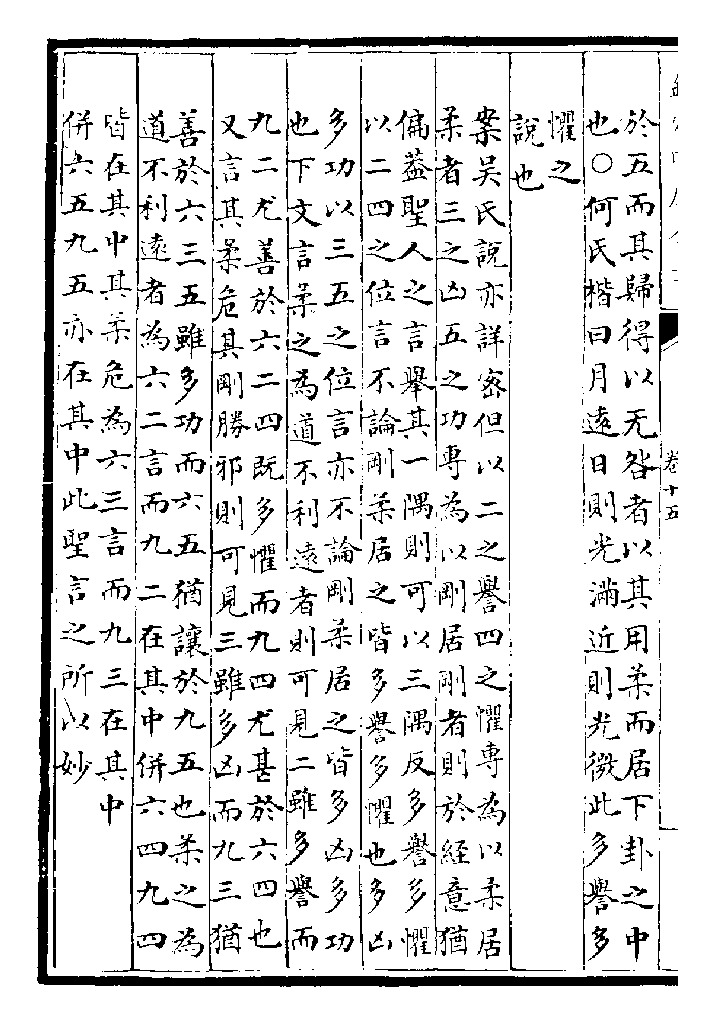 卷十五
於五而其歸得以无咎者以其用柔而居下卦之中
也○何氏楷曰月遠日則光滿近則光微此多譽多
懼之
說也
案吳氏說亦詳密但以二之譽四之懼專為以柔居
柔者三之凶五之功專為以剛居剛者則於經意猶
偏蓋聖人之言舉其一隅則可以三隅反多譽多懼
以二四之位言不論剛柔居之皆多譽多懼也多凶
多功以三五之位言亦不論剛柔居之皆多凶多功
也下文言柔之為道不利遠者則可見二雖多譽而
九二尤善於六二四既多懼而九四尤甚於六四也
又言其柔危其剛勝邪則可見三雖多凶而九三猶
善於六三五雖多功而六五猶讓於九五也柔之為
道不利遠者為六二言而九二在其中併六四九四
皆在其中其柔危為六三言而九三在其中
併六五九五亦在其中此聖言之所以妙